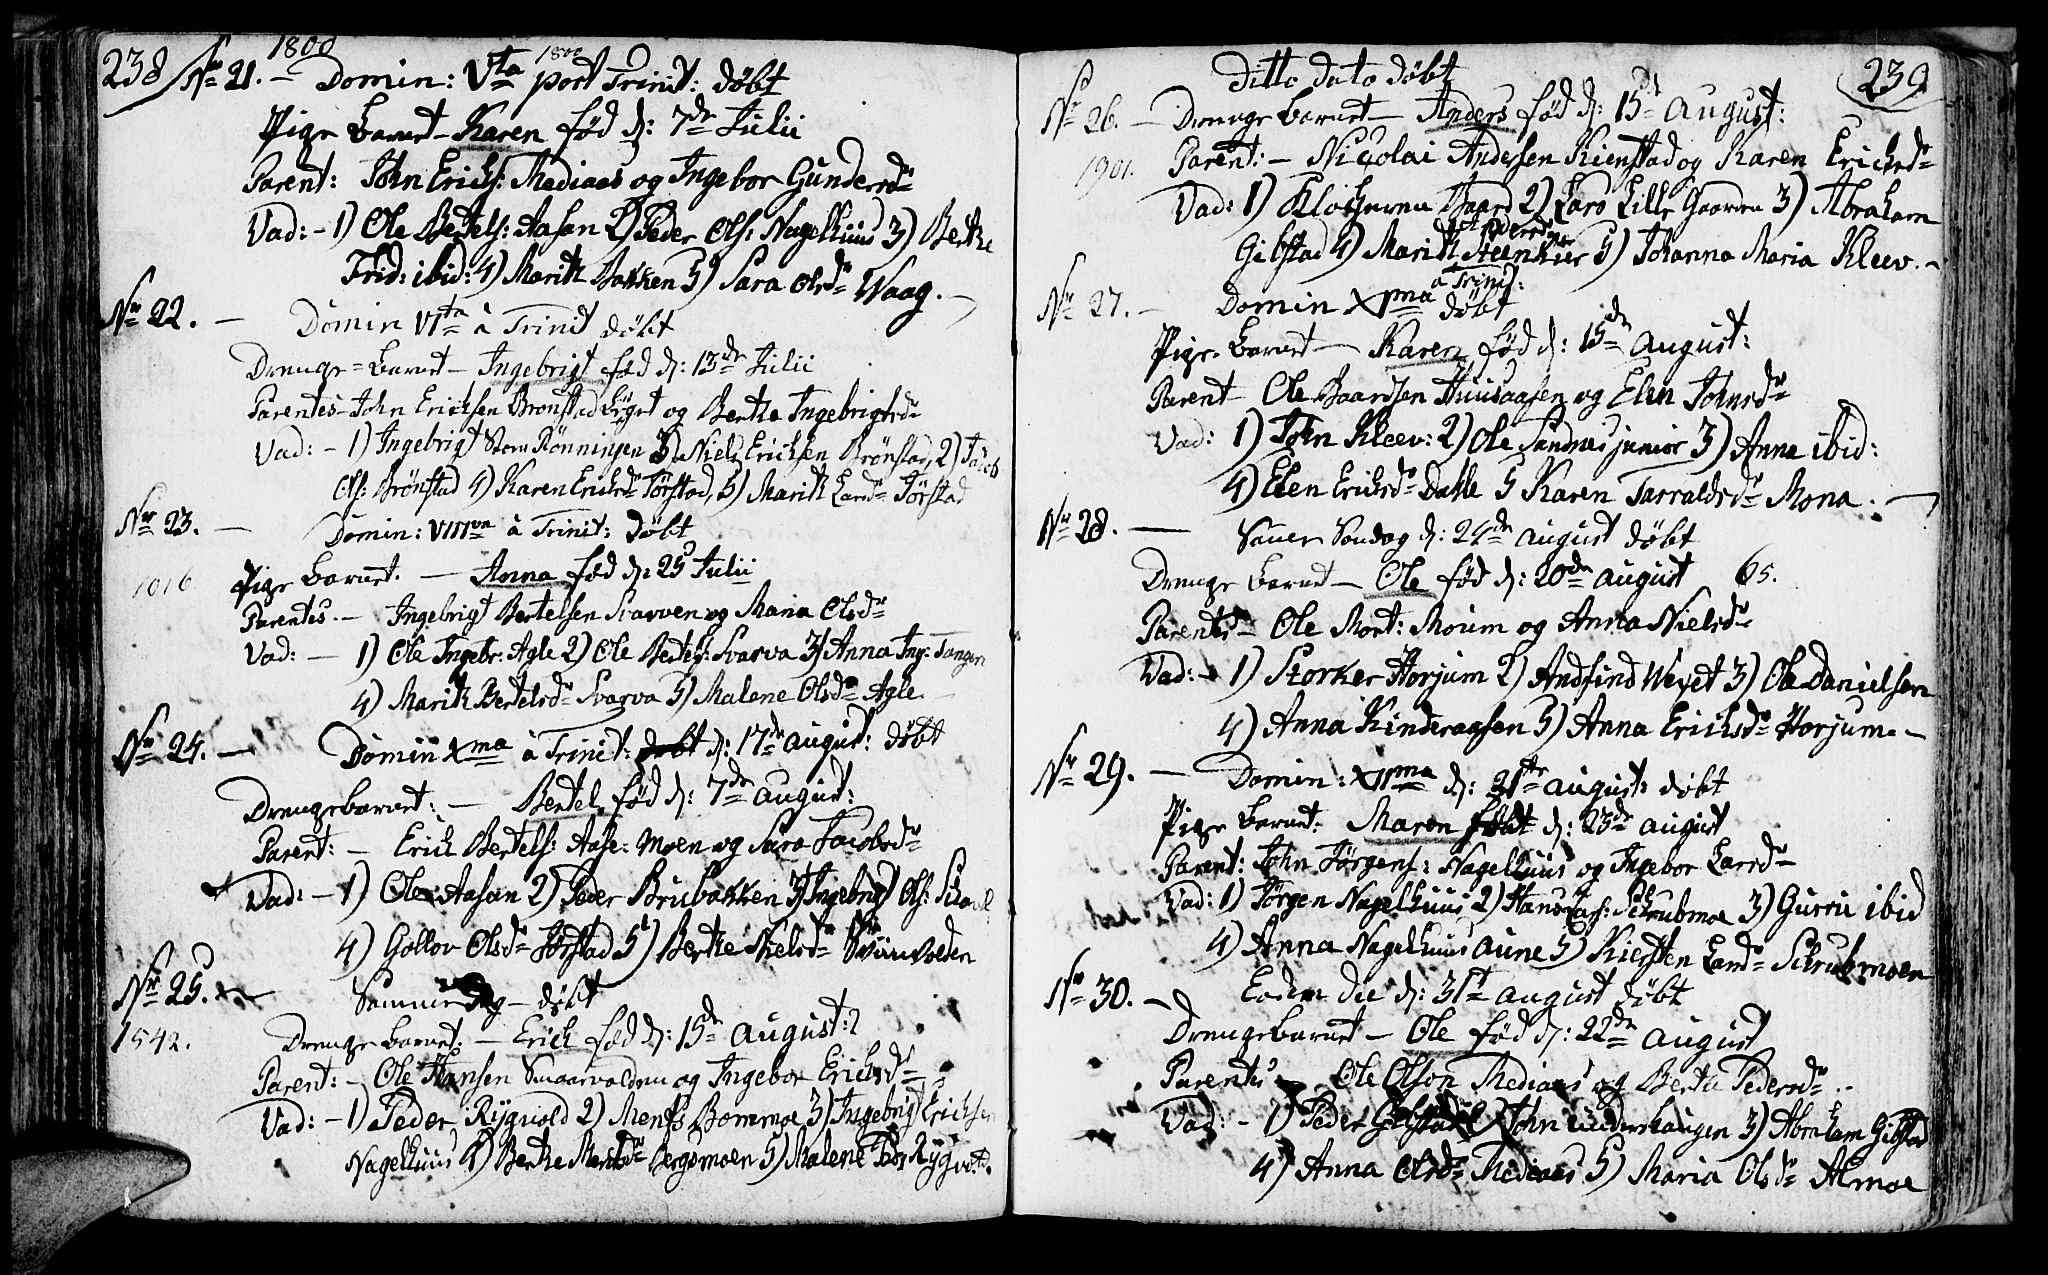 238
1800
1800
Nr 21. - Domin: Vta post Trinit: døbt
Pige barnet - Karen fød d: 7de Julii
Parent: John Erichs: Mediaas og Ingebor Gundersdr
Vad: - 1) Ole Bertels: Aasan 2) Peder Ols: Nagelhuus 3) Berthe
Trid: ibid: 4) Marith Bakken 5) Sara Olsdr Waag. -
Nr 22. - Domin VIta à Trinit døbt
Drenge-barnet - Ingebrigt fød d: 13de Julii
Parentes - John Erichsen Brønstad Eyget og Berthe Ingebrigtsdr
Vad: - 1) Ingebrigt Store Rønningen 3) Niels Erichsen Brønstad, 2) Jacob
Ols: Brønstad 4) Karen Erichsdr Tørstad, 5) Marith Larsdr Tørstad
Nr 23. - Domin: VIIIva à Trinit: døbt
1016 Pige barnet. - Anna fød d: 25 Julii
Parentes. - Ingebrigt Bertelsen Svarven og Maria Olsdr
Vad: - 1) Ole Ingebr: Agle 2) Ole Bertels: Svarva 3) Anna Ing: Tangen
4) Marith Bertelsdr Svarva 5) Malene Olsdr Agle. -
Nr 24. - Domin Xma à Trinit: døbt d: 17de august: døbt
Drengebarnet: - Bertel fød d: 7de august:
Parent: - Erich Bertels: Aase-moen og Sara Jacobsdr
Vad: - 1) Ole Aasan 2) Peder Brubakken 3) Ingebrigt Ols:
4) Gollov Olsdr Tørstad 5) Berthe Nielsdr
Nr 25. - Samme Dag - døbt
1542. Drenge barnet. - Erich fød d: 15de august:
Parent: - Ole Hansen Smaavolden og Ingebor Erichsdr
Vad: - 1) Peder Rygvold 2) Ments Bommoe 3) Ingebrigt Erichsen
Nagelhuus 4) Berthe Bergsmoen 5) Malene Rygvold.
239
Ditto dato døbt
Nr 26. - Drenge barnet - Anders fød d: 15de August:
1901. Parent: - Nicolai Andersen Kienstad og Karen Erichsdr
Vad: 1) Klokkeren Baard 2) Lars Lille Gaarden 3) Abraham
Gilstad 4) Marith Pedersdr Steenkier 5) Johanna Maria Kleev. -
Nr 27. - Domin XIma à Trinit: døbt
Pige-barnet - Karen fød d: 15de august:
Parent - Ole Baardsen Huusaasen og Elen Johnsdr
Vad: 1) John Kleev: 2) Ole Sandnes junior 3) Anna ibid:
4) Elen Erichsdr Dahle 5 Karen Tarraldsdr Mona. -
Nr 28. - Samme Søndag d: 24de august døbt
Drenge barnet - Ole fød d: 20de august 65.
Parentes - Ole Mort: Moum og Anna Nielsdr
Vad: - 1) Storker Horjum 2) Andfind Weyet 3) Ole Danielsen
4) Anna Kinderaasen 5) Anna Erichsdr Horjum. -
Nr 29. - Domin: XIIma d: 31te august: døbt
Pige barnet: Maren født d: 23de august
Parent: John Jørgens: Nagelhuus og Ingebor Larsdr
Vad: 1) Jørgen Nagelhuus 2) Hans Lars: Schrubmoe 3) Gurru ibid
4) Anna Nagelhuus aune 5) Kiersten Larsdr Schrubmoen
Nr 30. - Eodem die d: 31t august døbt
Drengebarnet - Ole fød d: 22de august
Parentes - Ole Olson Mediaas og Berta Pedersdr -
Vad: - 1) Peder Gilstad 2) John underhaugen 3) Abraham Gilstad
4) Anna Olsdr Mediaas 5) Maria Olsdr Almoe